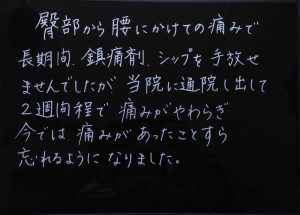 臀部から腰にかけての痛みで
長期間、鎮痛剤、シップを手放せ
ませんでしたが 当院に通院し出して
2週間程で 痛みがやわらぎ
今では 痛みがあったことすら
忘れるように なりました。